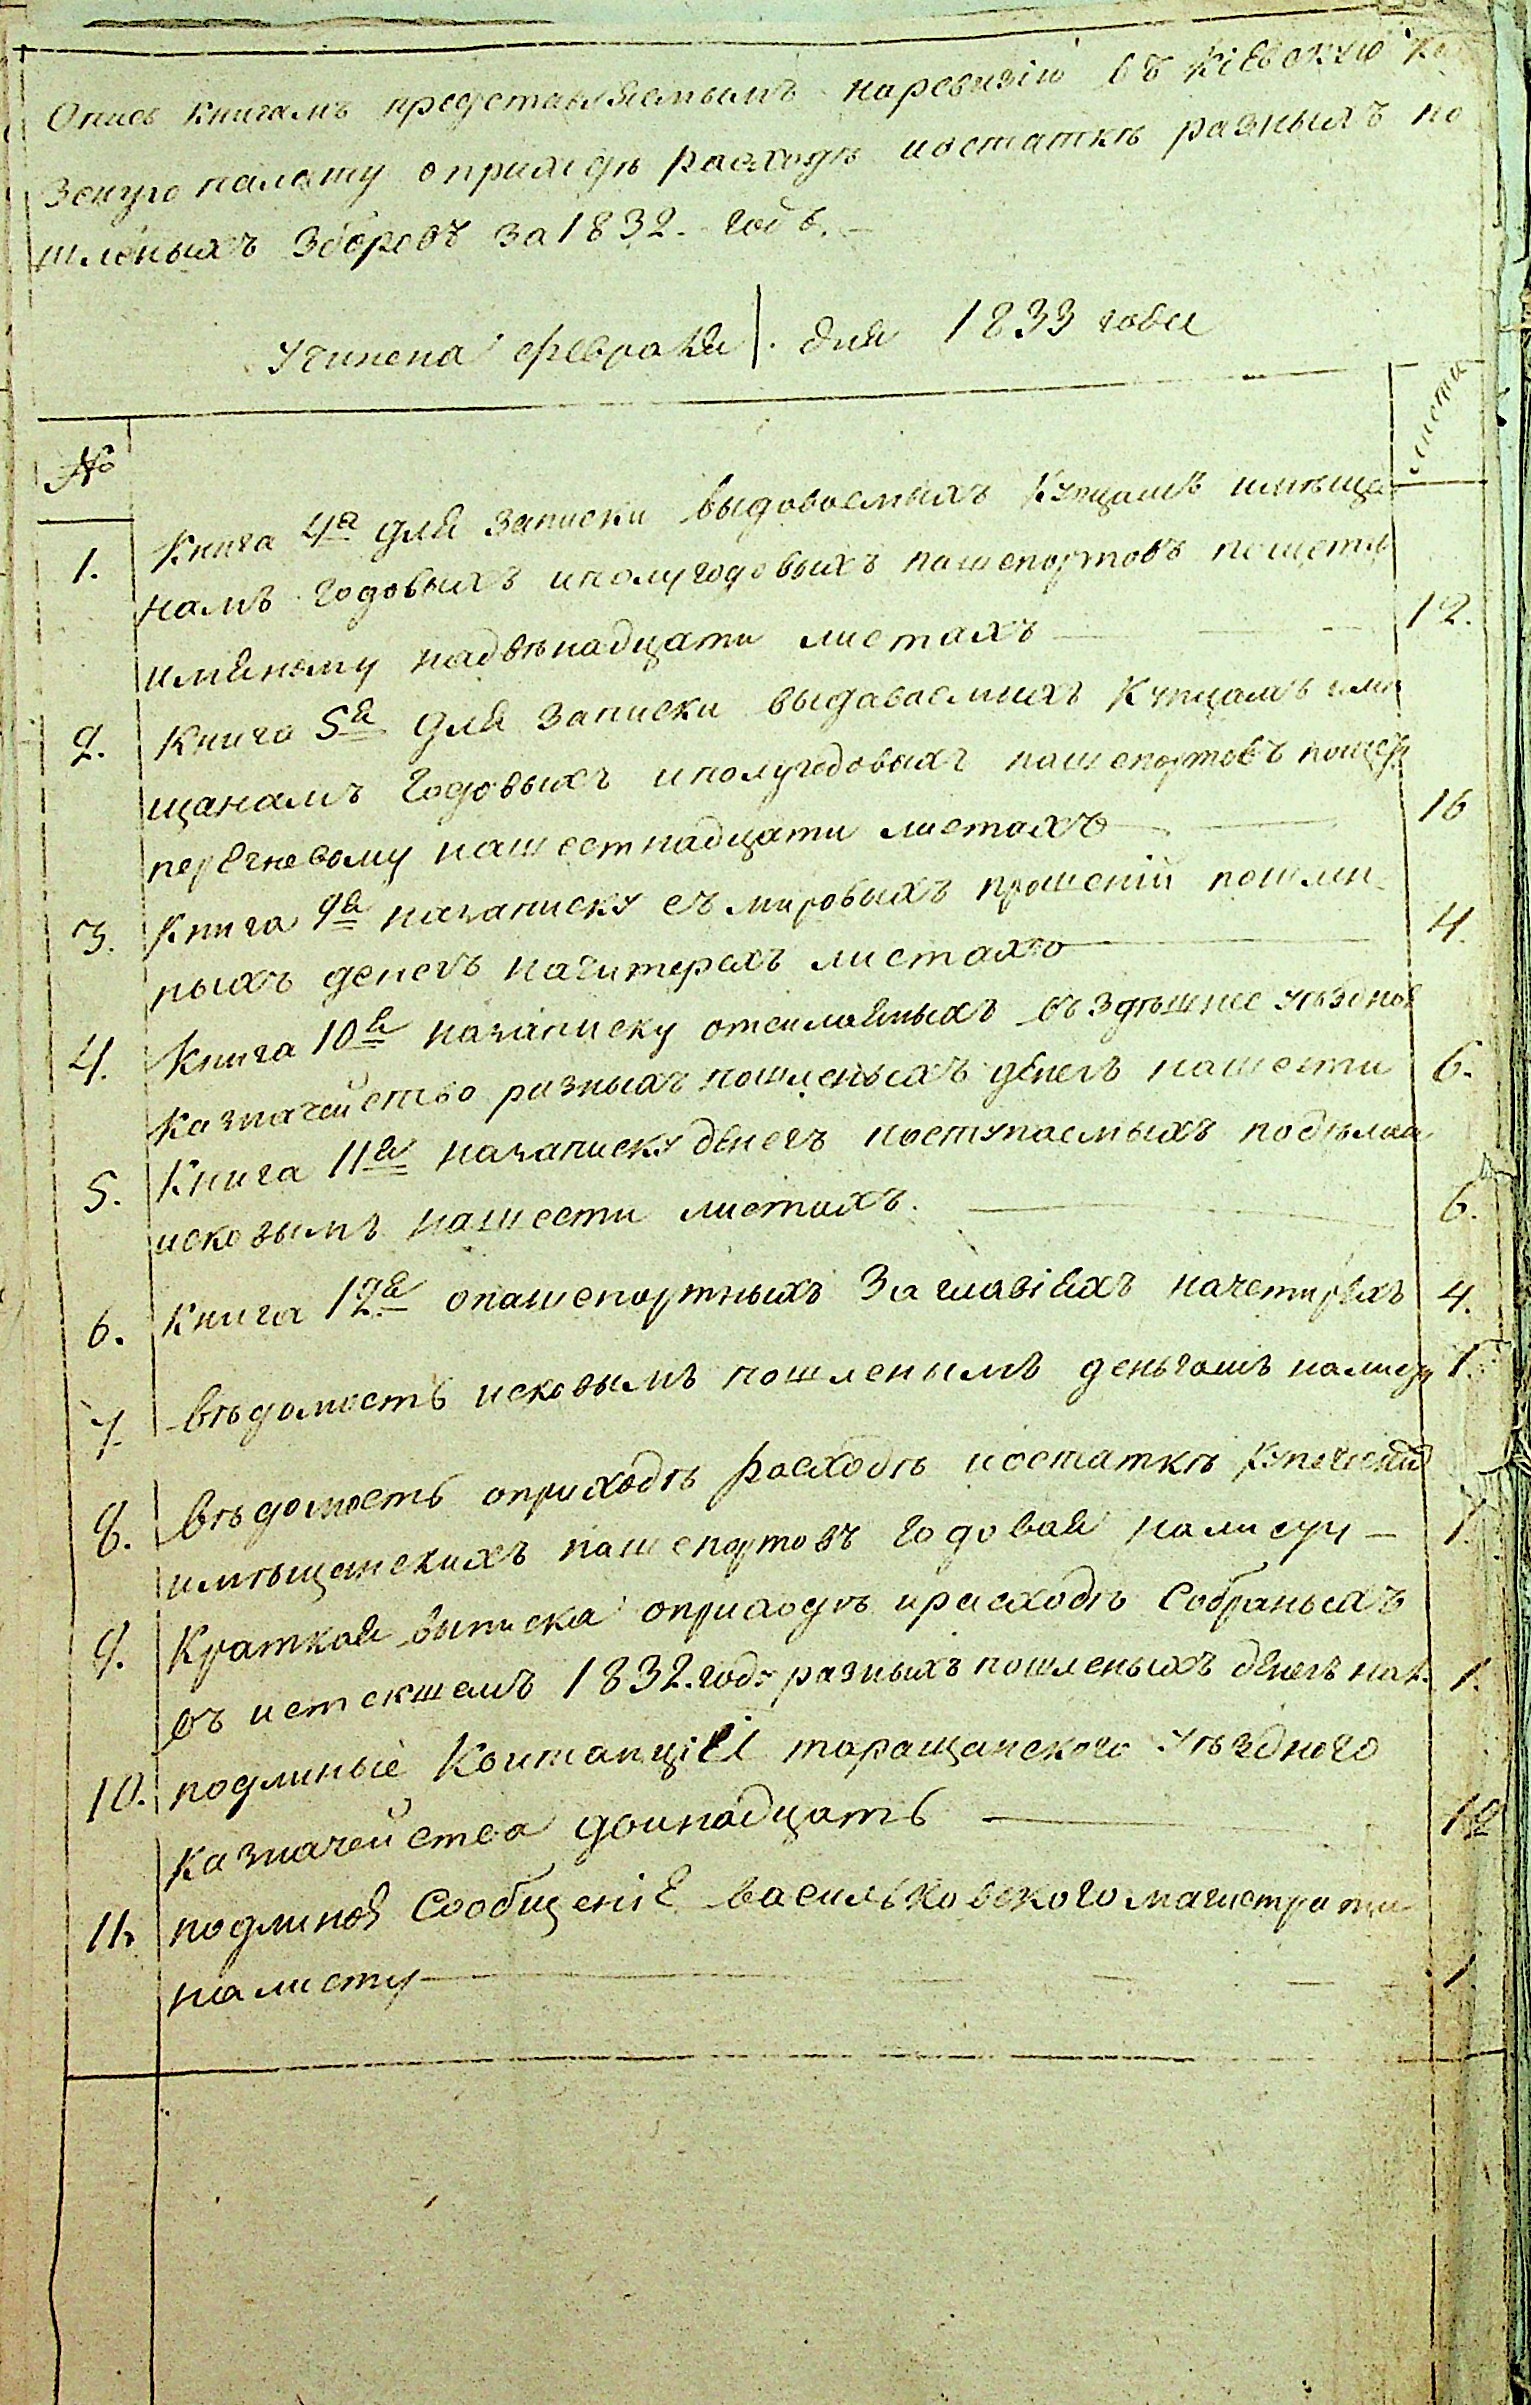 Опись книгамъ представляемымъ наревизію въ Кіевскую Ка
зенную палату оприходѣ расходѣ иостаткѣ разныхъ по
шленыхъ зборовъ за 1832. годъ.
Учинена февраля . дня 1833 года
№ листы
1. Книга 4я для записки выдоваемыхъ Купцамъ имѣща
намъ годовыхъ иполугодовыхъ пашепортовъ
имяному надвѣнадцати листахъ 12.
2. Книга 5я для записки выдаваемихъ Купцамъ имѣ
щанамъ годовыхъ иполугодовыхъ пашепортовъ
перечневому нашестнадцати листахъ 16
3. Книга 9я назаписку съ мировыхъ прошеній пошли
ныхъ денегъ начитерахъ листахъ 4.
4. Книга 10я назаписку отсилаемыхъ въ здѣшнее уѣздное
казначейство разныхъ пошленыхъ денегъ нашести 6.
5. Книга 11я назаписку денегъ поступаемыхъ подѣлам
исковымъ нашести листахъ. 6.
6. Книга 12я опашепортныхъ Заглавіяхъ начетирѣхъ 4.
7. вѣдомость исковымъ пошленымъ деньгамъ налисту 1.
8. вѣдомость оприходѣ расходѣ иостаткѣ купечески
имѣщанскихъ пашепортовъ годовая налисту 1.
9. Краткая выписка оприходѣ ирасходѣ Собраныхъ
въ истекшемъ 1832. году разныхъ пошленыхъ денегъ на 1. 1.
10. подлиные Квитанціи таращанского Уѣздного
казначейства двинадцать 12
11. подлиноя Сообщеніе васильковского магистрата
налисту 1